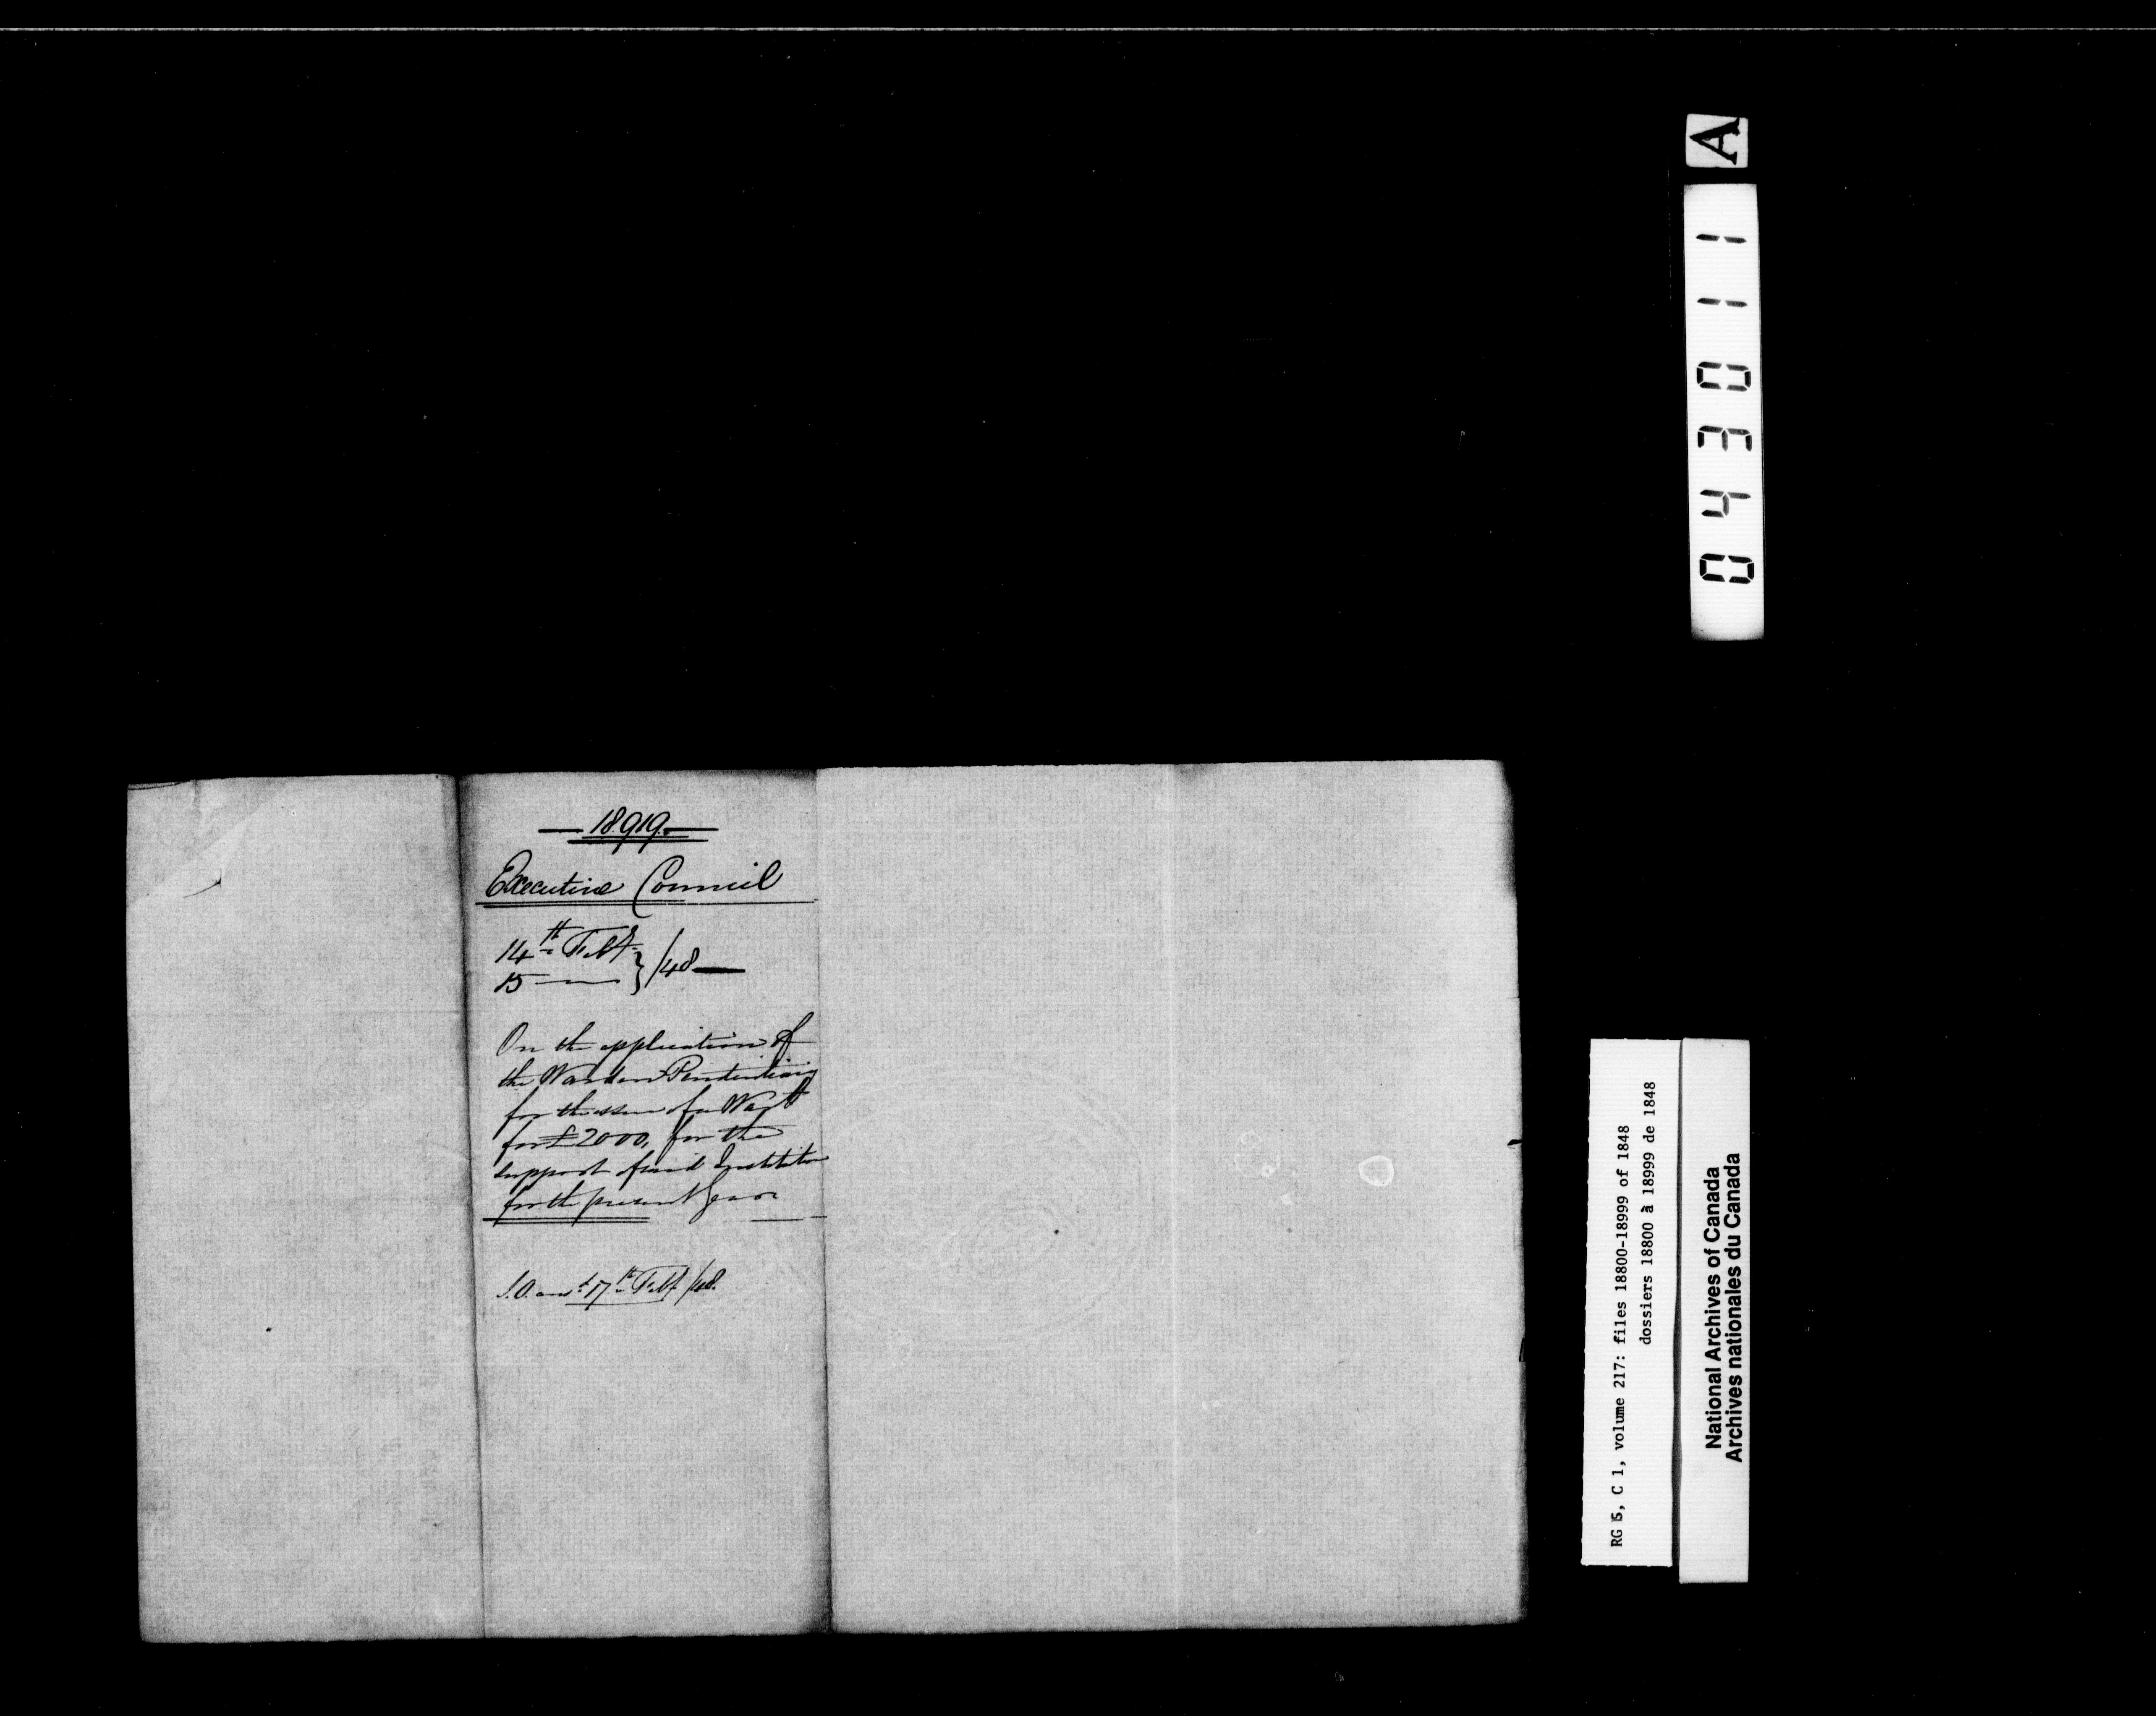 18.919.
Executive Council
14th Feby
15 — } /48
On the application of
the Warden Penitentiary
for the issue of a Warrt
for £2000, for the
support of said Institutn
for the present year
ansd 17th Feby /48.
A
043011
RG 5, C 1, volume 217: files 18800-18999 of 1848
dossiers 18800 à 18999 de 1848
National Archives of Canada
Archives nationales du Canada